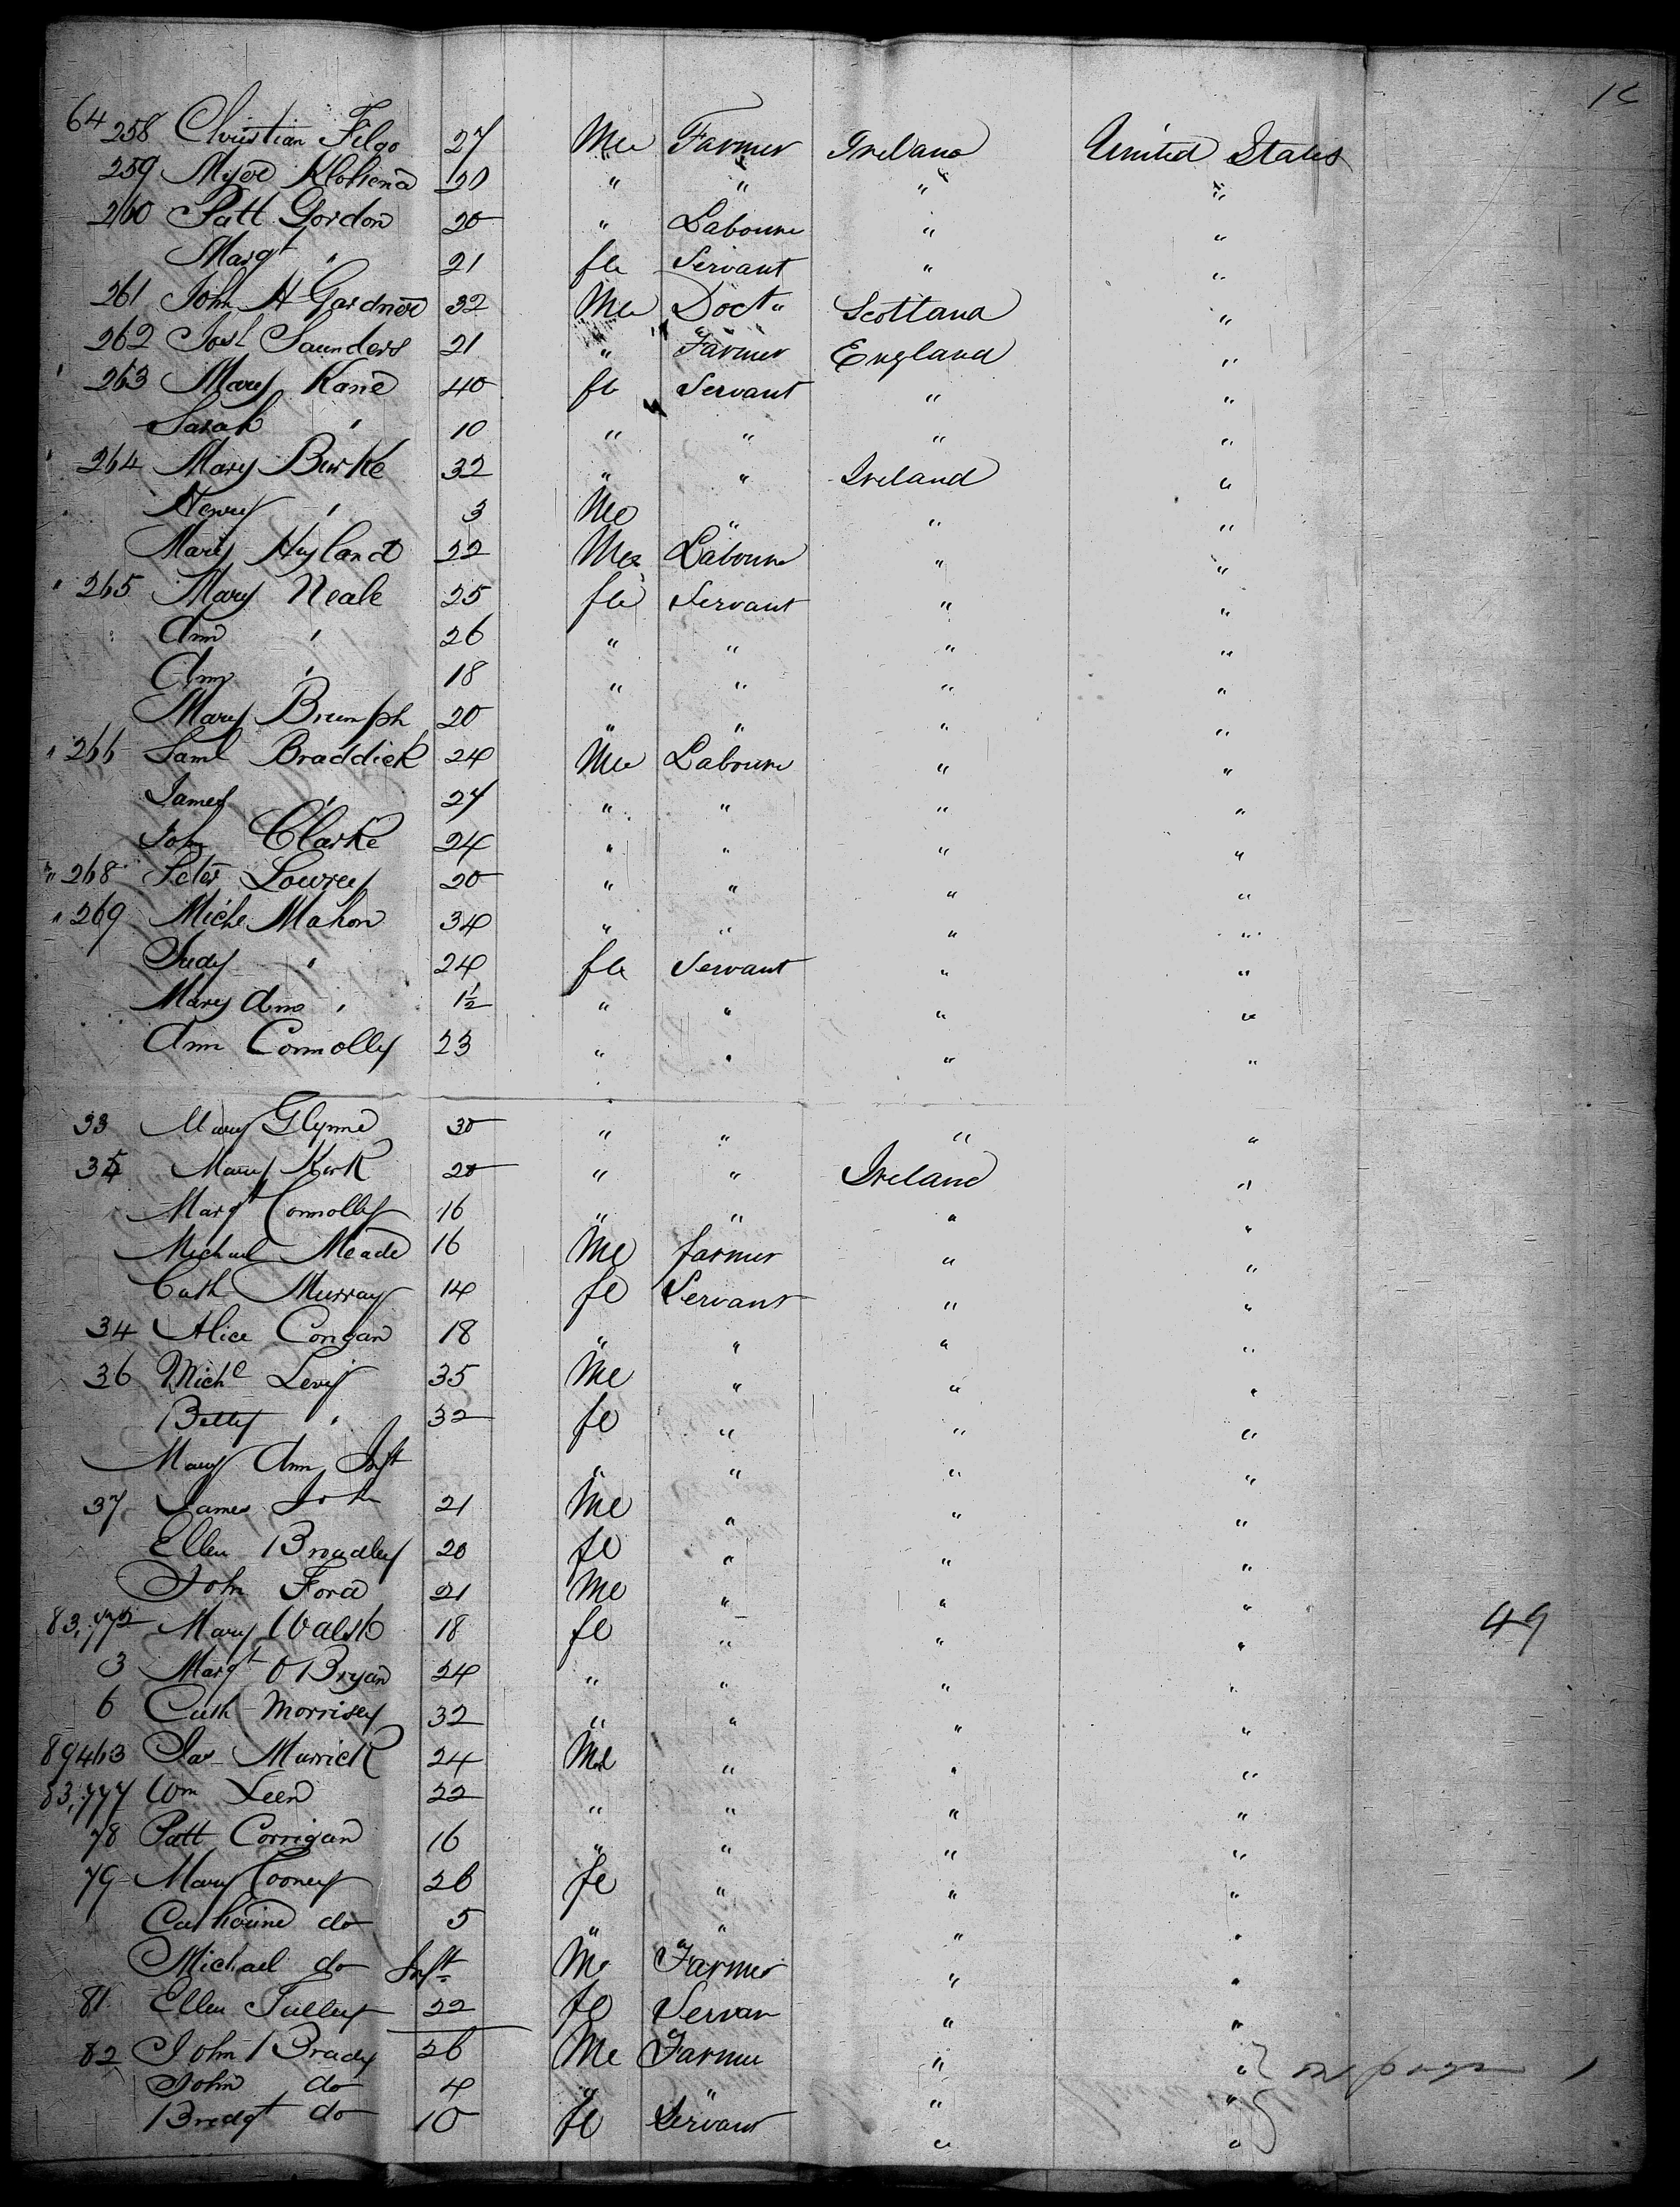 64 258 Christian Filgo 27 Me Farmer Ireland United States
259 20 " " " "
260 Patt Gordon 20 " Laboure " "
Margt " 21 fle Servant " "
261 John H Gardner 32 Me Doctr Scotland "
262 Josh Saunders 21 " Farmer England "
263 Mary Kane 40 fe Servant " "
Sarah " 10 " " " "
264 Mary Burke 32 " " Ireland "
Henry " 3 Me " " "
Mary Hyland 22 Me Laboure " "
" 265 Mary Neale 25 fle Servant " "
Ann " 26 " " " "
Amy " 18 " " " "
Mary Brumph 20 " " " "
" 266 Saml Braddick 24 Me Laboure " "
James " 27 " " " "
John Clarke 24 " " " "
" 268 Peter Lowrey 20 " " " "
" 269 Michl Mahon 34 " " " "
Judy " 24 fle Servant " "
Mary Ann " 1½ " " " "
Ann Connolly 23 " " " "
33 Mary Glynne 30 " " " "
35 Mary Kirk 20 " " Ireland "
Margt Connolly 16 " " " "
Michael Meade 16 Me farmer " "
Cath Murray 14 fe Servant " "
34 Alice Congan 18 " " " "
36 Michl Levy 35 Me " " "
Betty " 32 fe " " "
Mary Ann Inft " " " "
37 James John 21 Me " " "
Ellen Bradley 20 fe " " "
John Ford 21 Me " " "
83,772 Mary Walsh 18 fe " " " 49
3 Margt O Bryan 24 " " " "
6 Cath Morrisey 32 " " " "
89463 Jas Murrick 24 Me " " "
83,777 Wm Leen 22 " " " "
78 Patt Corrigan 16 " " " "
79 Mary Cooney 26 fe " " "
Catherine do 5 " " " "
Michael do Inft Me Farmer " "
81 Ellen Tulley 22 fe Servan " "
82 John Brady 26 Me Farme " "
John do 4 " " " "
Bredgt do 10 fe Servant " "